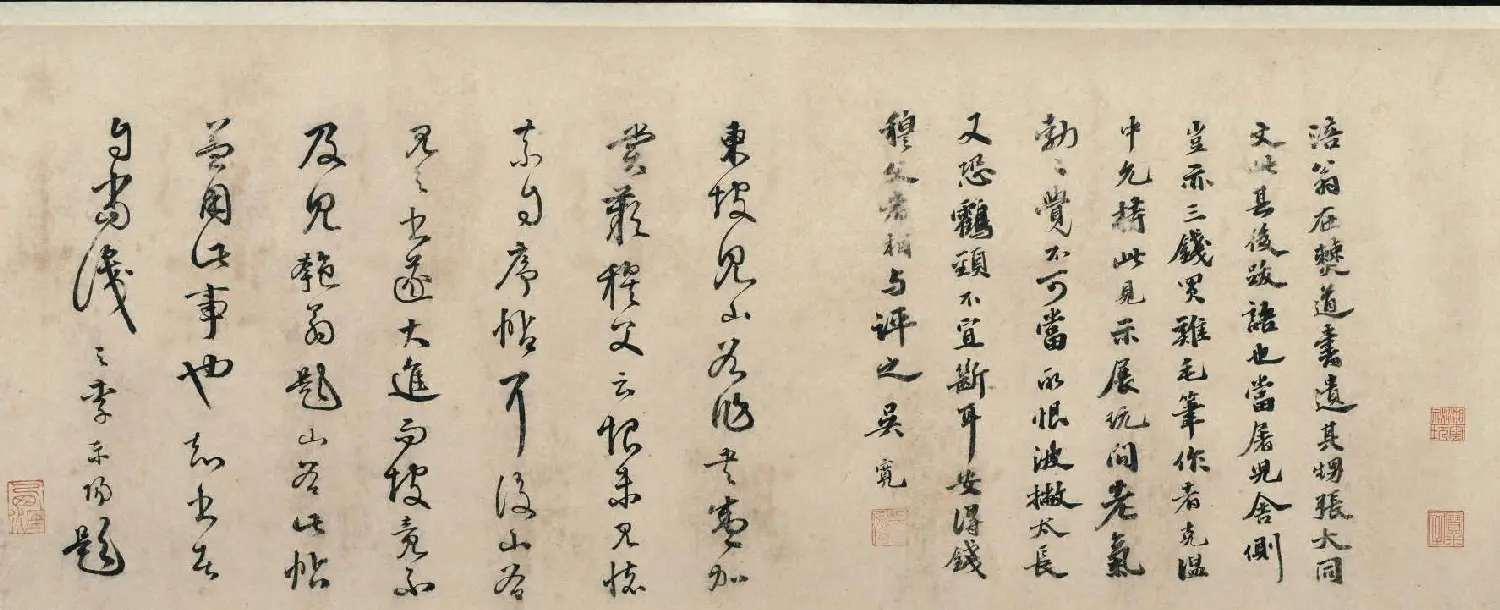 涪翁在僰道書遺其甥張大同
文此其後跋語也當屠兒舍側
豈亦三錢買雞毛筆作者克溫
中允持此見示展玩間老氣
勃〻覺不可當所恨波撇太長
又恐鶴頸不宜斷耳安得錢
穆父者相与評之 吳寬
東坡見山谷作書加
賞歎穆父云恨未見懷
素自序帖耳後山谷
見之書遂大進而坡竟不
及見匏翁題山谷此帖
蓋用此事也知書者
自當識之李東陽題